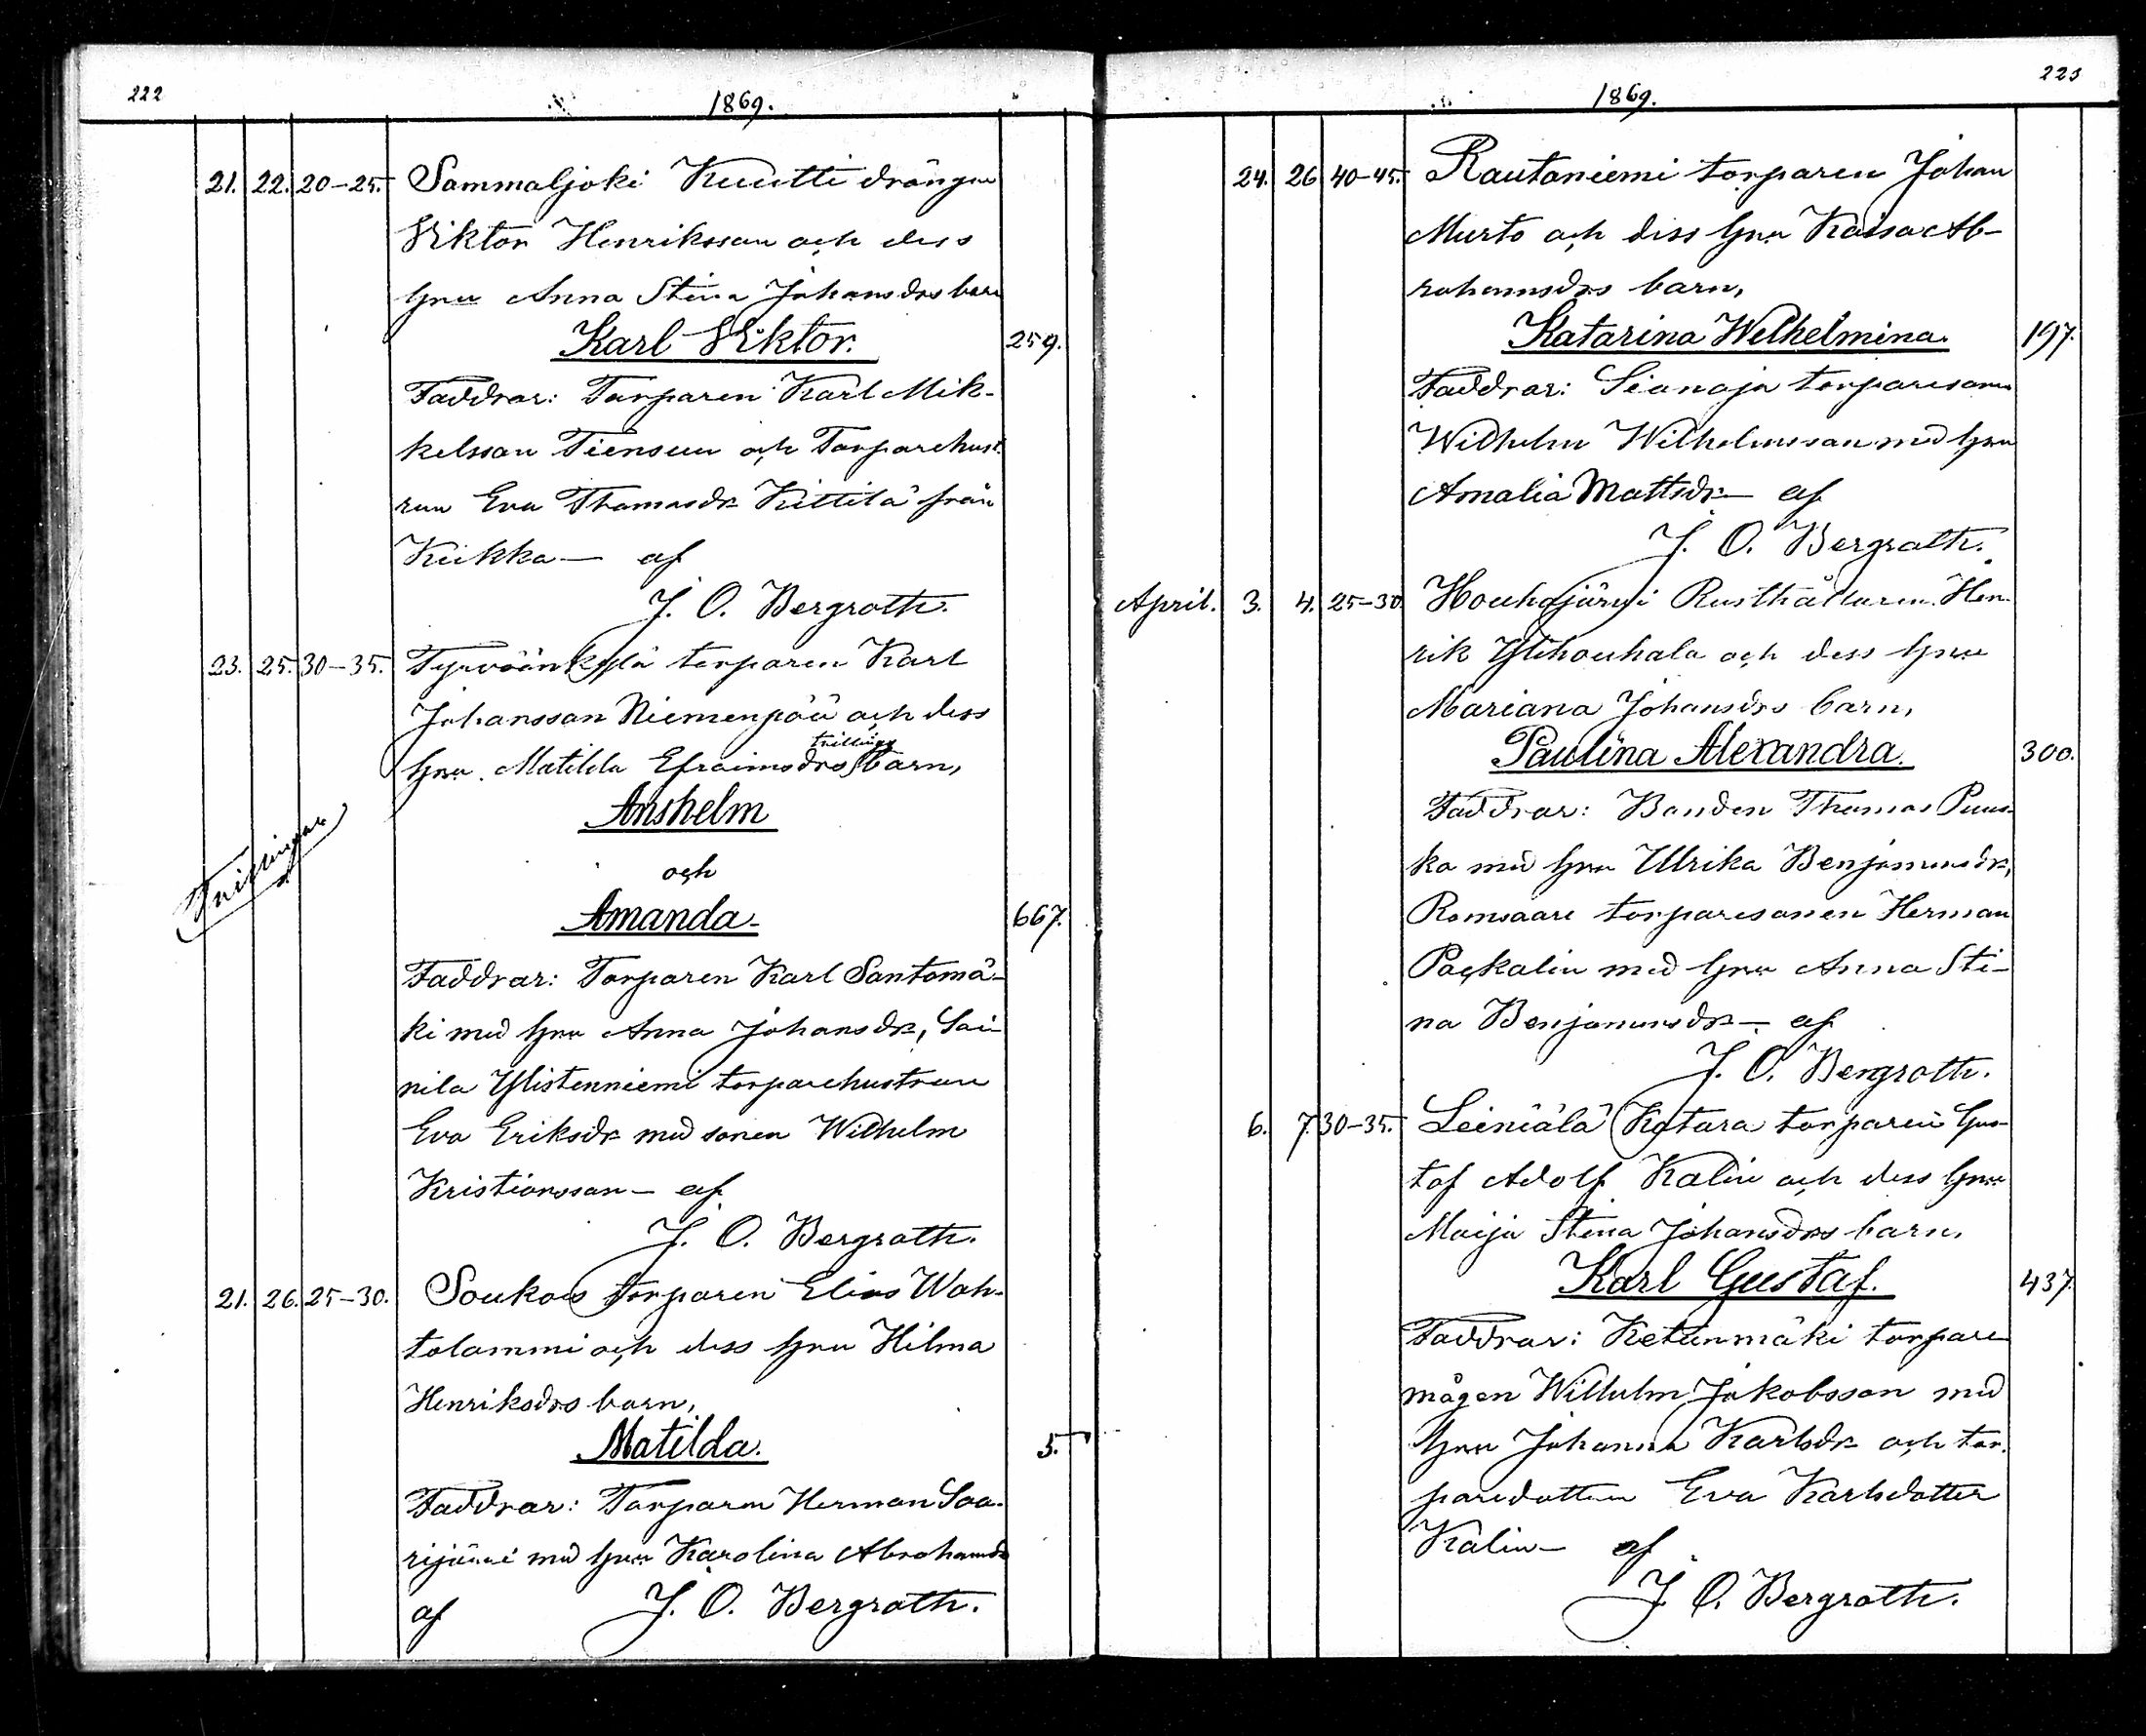 222
1869.
21. 22. 20-25. Sammaljoki Kuutti drängen
Viktor Henriksson och dess
hru Anna Stina Johansdrs barn
Karl Viktor. 259.
Faddrar: Torparen Karl Mik-
kelsson Tiensuu och Torparehust-
run Eva Thomasdr Kittilä från
Kiikka— af
J. O. Bergroth.
23. 25. 30-35. Tyrväänkylä torparen Karl
Johansson Niemenpää och dess
trillings
hru. Matilda Efraimsdrs barn,
Anshelm
och
Trillingar
Amanda. 667.
Faddrar: Torparen Karl Santamä-
ki med hru Anna Johansdr,
nila Ylistenniemi torparehustrun
Eva Eriksdr med sonen Wilhelm
Kristiansson— af
J. O. Bergroth.
21. 26. 25-30. Soukos torparen Elias Wah-
tolammi och dess hru Hilma
Henriksdrs barn,
Matilda. 5.
Faddrar: Torparen Herman Saa-
rijärvi med hru Karolina Abrahamsdr
af J. O. Bergroth.
223
1869.
24. 26 40-45. Rautaniemi torparen Johan
Murto och dess hru Kaisa Ab-
rahamsdrs barn,
Katarina Wilhelmina. 197.
Faddrar: Sianoja torparesonen
Wilhelm Wilhelmsson med hru
Amalia Mattsdr— af
J. O. Bergroth.
April. 3. 4. 25-30. Houhajärvi Rusthållaren Hen-
rik Ylihouhala och dess hru
Mariana Johansdrs barn,
Paulina Alexandra. 300.
Faddrar: Bonden Thomas Puus-
ka med hru Ulrika Benjaminsdr,
Romsaari torparesonen Herman
med hru Anna Sti-
na Benjaminsdr— af
J. O. Bergroth.
6. 7. 30-35. Leiniälä Katara torparen Gus-
taf Adolf Kalin och dess hru
Maija Stina Johansdrs barn,
Karl Gustaf. 437.
Faddrar: Ketunmäki torpare
mågen Wilhelm Jakobsson med
hru Johanna Karlsdr och tor-
paredottern Eva Karlsdotter
Kalin— af
J. O. Bergroth.